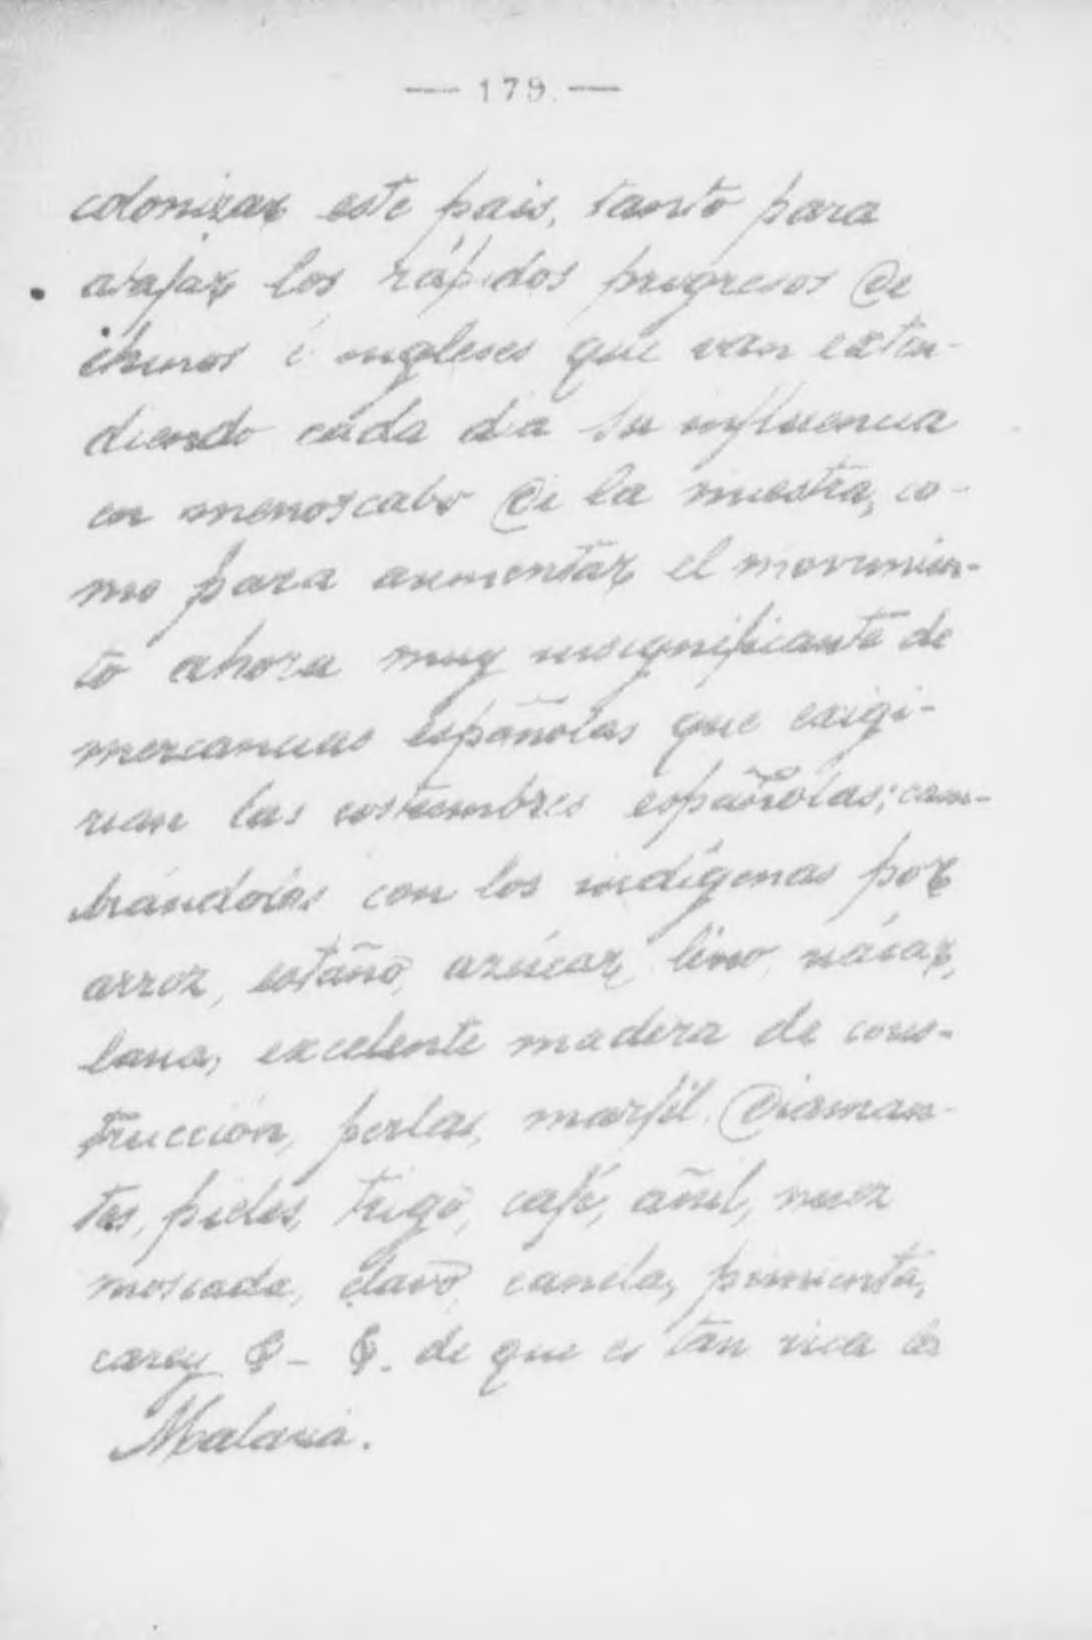 — 179. —
colonizar este pais, tanto para
atajar los rápidos progresos de
chinos é ingleses que van exten-
diendo cada dia su influencia
en menoscabo de la nuestra, co-
mo para aumentar el movimien-
to ahora muy insignificante de
mercancias españolas que exigi-
rian las costumbres españolas; cam-
biándolas con los indígenas por
arroz, estaño, azúcar, lino, nácar,
lana, excelente madera de cons-
trucción, perlas, marfil, diaman-
tes, pieles, trigo, café, añil, nuez
moscada, clavo, canela, pimienta,
carey & - &. de que es tan rica la
Malasia.